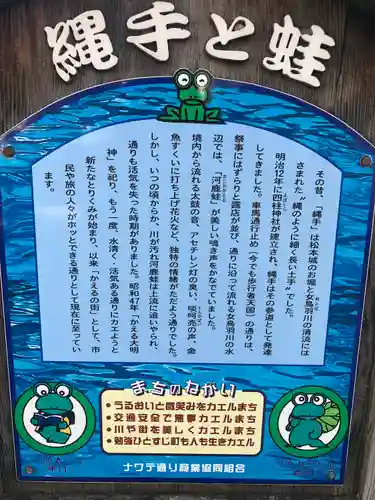 縄手と蛙
その昔、「縄手」は松本城のお堀と女鳥羽川の清流には
さまれた“縄のように細く長い土手”でした。
明治12年に四柱神社が建立され、縄手はその参道として発達
してきました。車馬通行止め（今でも歩行者天国）の通りは、
祭事にはずらりと露店が並び、通りに沿って流れる女鳥羽川の水
辺では、「河鹿蛙」が美しい鳴き声をかなでていました。
境内から流れる太鼓の音、アセチレン灯の臭い、啖呵売の声、金
魚すくいに打ち上げ花火など、独特の情緒がただよう通りでした。
しかし、いつの頃からか、川が汚れ河鹿蛙は上流に追いやられ、
通りも活気を失った時期がありました。昭和47年「かえる大明
神」を祀り、もう一度、水清く・活気ある通りにカエようと
新たなとりくみが始まり、以来「かえるの街」として、市
民や旅の人々がホッとできる通りとして現在に至ってい
ます。
まちのねがい
うるおいと微笑みをカエルまち
交通安全で無事カエルまち
川や街を美しくカエルまち
勉強ひとすじ町も人も生きカエル
ナワテ通り商業協同組合